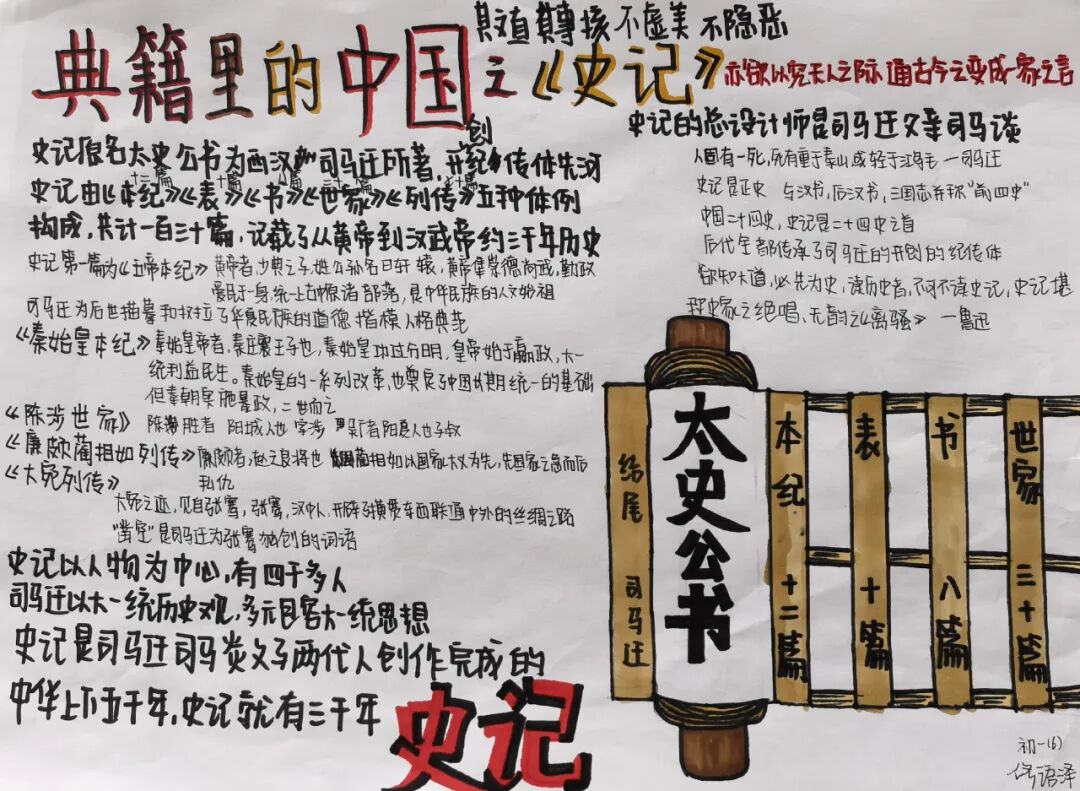 其文直 其事核 不虚美 不隐恶
典籍里的中国之《史记》
亦欲以究天人之际 通古今之变成一家之言
史记原名太史公书为西汉 司马迁所著 开创纪传体先河
史记由《本纪》《表》《书》《世家》《列传》五种体例
十二篇 十篇 八篇 三十篇 七十篇
构成,共计一百三十篇,记载了从黄帝到汉武帝约三千年历史
史记第一篇为《五帝本纪》 黄帝者,少典之子,姓公孙名曰轩辕,黄帝集崇德尚武,勤政
爱民于一身,统一上古中原诸部落,是中华民族的人文始祖
司马迁为后世描摹和树立了华夏民族的道德 指模人格典范
《秦始皇本纪》 秦始皇帝者,秦庄襄王子也,秦始皇功过分明,皇帝始于嬴政,大一
统利益民生。秦始皇的一系列改革,也奠定了中国长期统一的基础
但秦朝 施暴政,二世而亡
《陈涉世家》 陈胜者 阳城人也 字涉 吴广者阳夏人也字叔
《廉颇蔺相如列传》 廉颇者,赵之良将也 蔺相如以国家大义为先,先国家之急而后
私仇
《大宛列传》
大宛之迹,见自张骞,张骞,汉中人,开辟了横贯东西联通中外的丝绸之路
"凿空"是司马迁为张骞独创的词语
史记以人物为中心,有四千多人
司马迁以大一统历史观,多元包容大一统思想
史记是司马迁司马谈父子两代人创作完成的
中华上下五千年,史记就有三千年
史记
史记的总设计师是司马迁父亲司马谈
人固有一死,或有重于泰山,或轻于鸿毛 一司马迁
史记是正史 与汉书,后汉书,三国志并称"前四史"
中国二十四史,史记是二十四史之首
后代全都传承了司马迁的开创的纪传体
欲知大道,必先为史,读历史者,不可不读史记,史记堪
称史家之绝唱、无韵之《离骚》 一鲁迅
结尾 司马迁
太史公书
本纪 十二篇
表 十篇
书 八篇
世家 三十篇
初一(6)
语泽